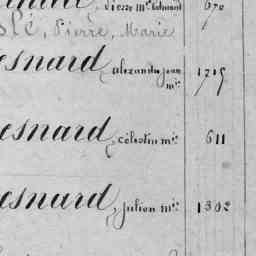 pierre m.ie edmond 670
slé, Pierre, Marie
esnard, alexandre jean 1715
m.ie
esnard, célestin m.ie 611
esnard, julien m.ie 1302